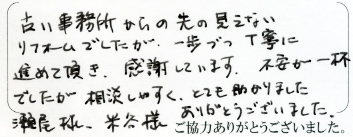 古い事務所からの先の見えない
リフォームでしたが、一歩づつ丁寧に
進めて頂き、感謝しています。不安が一杯
でしたが相談しやすく、とても助かりました
瀬尾様、米谷様 ありがとうございました。
ご協力ありがとうございました。